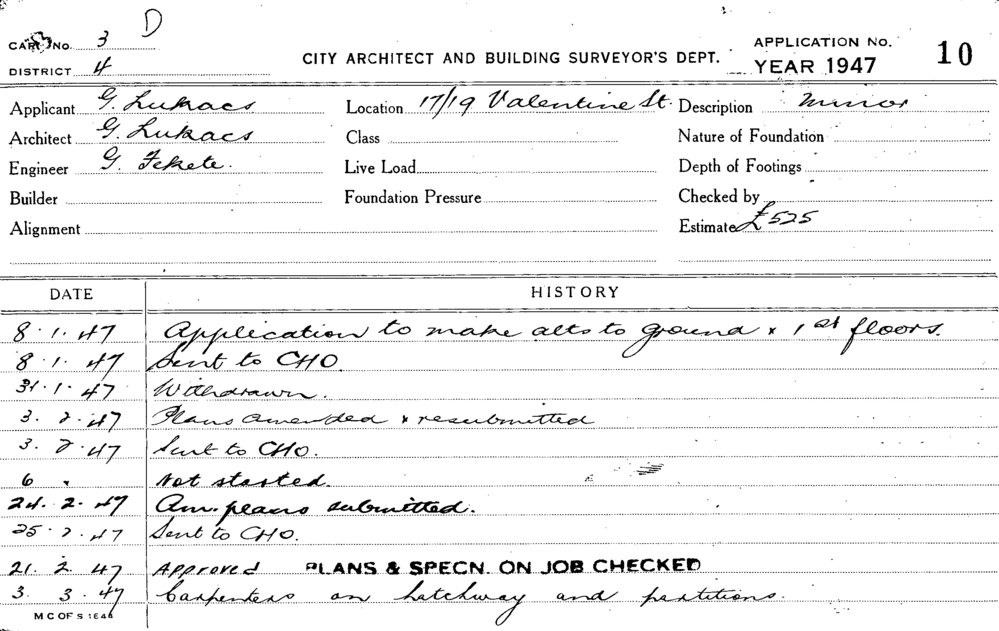 D
CARD No. 3
DISTRICT 4
CITY ARCHITECT AND BUILDING SURVEYOR'S DEPT.
APPLICATION No.
YEAR 1947
10
Applicant G. Lukacs
Location 17/19 Valentine St.
Description Minor
Architect G. Lukacs
Class
Nature of Foundation
Engineer G. Fekete.
Live Load
Depth of Footings
Builder
Foundation Pressure
Checked by
Alignment
Estimate £525
DATE HISTORY
8.1.47 Application to make alts to ground & 1st floors.
8.1.47 Sent to CHO.
31.1.47 Withdrawn.
3.2.47 Plans amended & resubmitted
3.2.47 Sent to CHO.
6 " Not started.
24.2.47 Am. plans submitted.
25.2.47 Sent to CHO.
21.2.47 Approved PLANS & SPECN. ON JOB CHECKED
3.3.47 Carpenters on hatchway and partitions.
M C OF S 1644